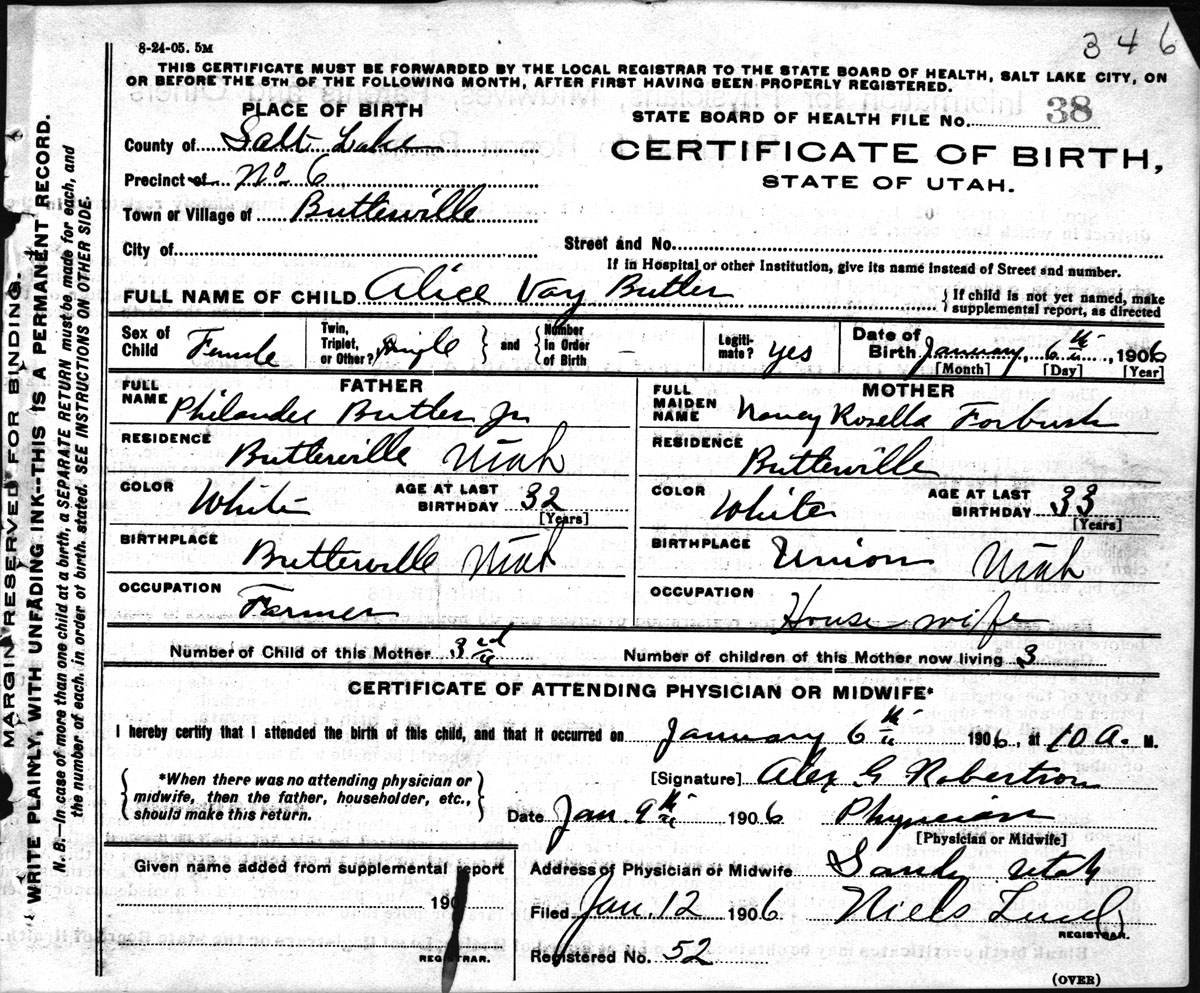 346
8-24-05. 5M
THIS CERTIFICATE MUST BE FORWARDED BY THE LOCAL REGISTRAR TO THE STATE BOARD OF HEALTH, SALT LAKE CITY, ON
OR BEFORE THE 5TH OF THE FOLLOWING MONTH, AFTER FIRST HAVING BEEN PROPERLY REGISTERED.
PLACE OF BIRTH
STATE BOARD OF HEALTH FILE No. 38
County of Salt Lake
CERTIFICATE OF BIRTH,
STATE OF UTAH.
Precinct of No 6
Town or Village of Butlerville
City of
Street and No.
If in Hospital or other Institution, give its name instead of Street and number.
FULL NAME OF CHILD Alice Vay Butler
If child is not yet named, make
supplemental report, as directed
Sex of Child Female
Twin, Triplet, or Other? Single and Number in Order of Birth –
Legiti-mate? yes
Date of Birth January, 6th 1906
[Month] [Day] [Year]
FATHER
FULL NAME Philander Butler Jr
RESIDENCE Butlerville Utah
COLOR White AGE AT LAST BIRTHDAY 32
[Years]
BIRTHPLACE Butlerville Utah
OCCUPATION Farmer
MOTHER
FULL MAIDEN NAME Nancy Rosella Forbush
RESIDENCE Butlerville
COLOR White AGE AT LAST BIRTHDAY 33
[Years]
BIRTHPLACE Union Utah
OCCUPATION House-wife
Number of Child of this Mother 3rd Number of children of this Mother now living 3
CERTIFICATE OF ATTENDING PHYSICIAN OR MIDWIFE*
I hereby certify that I attended the birth of this child, and that it occurred on January 6th 1906, at 10 A. M.
*When there was no attending physician or
midwife, then the father, householder, etc.,
should make this return.
[Signature] Alex G Robertson
Date Jan 9th 1906 Physician
[Physician or Midwife]
Given name added from supplemental report
190
REGISTRAR.
Address of Physician or Midwife Sandy Utah
Filed Jan. 12 1906 Niels Lind
REGISTRAR.
Registered No. 52
(OVER)
MARGIN RESERVED FOR BINDING.
WRITE PLAINLY, WITH UNFADING INK--THIS IS A PERMANENT RECORD.
N. B.--In case of more than one child at a birth, a SEPARATE RETURN must be made for each, and
the number of each, in order of birth, stated. SEE INSTRUCTIONS ON OTHER SIDE.